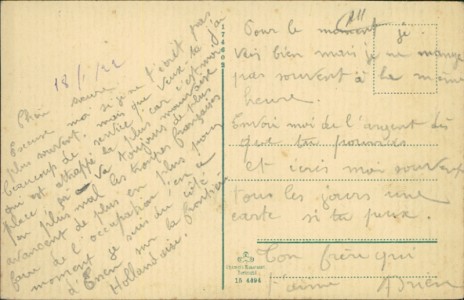 18/1/22
Chère sœur
Excuse moi si je ne t'écrit pas
plus souvent, mais que veux-tu j'ai
beaucoup de service, car c'est moi
qui est attrapé la plus mauvaise
place, ça va toujours de plus
en plus mal les troupes françaises
avancent de plus en plus pour
faire de l'occupation, en ce
moment je suis du côté
d'Essen sur la frontière
Hollandaise.
174609
15 4494
Pour le moment je
vais bien mais je ne mange
pas souvent à la même
heure.
Envoi moi de l'argent dès
que tu pourras
et écris moi souvent
tous les jours une
carte si tu peux.
Ton frère qui
t'aime